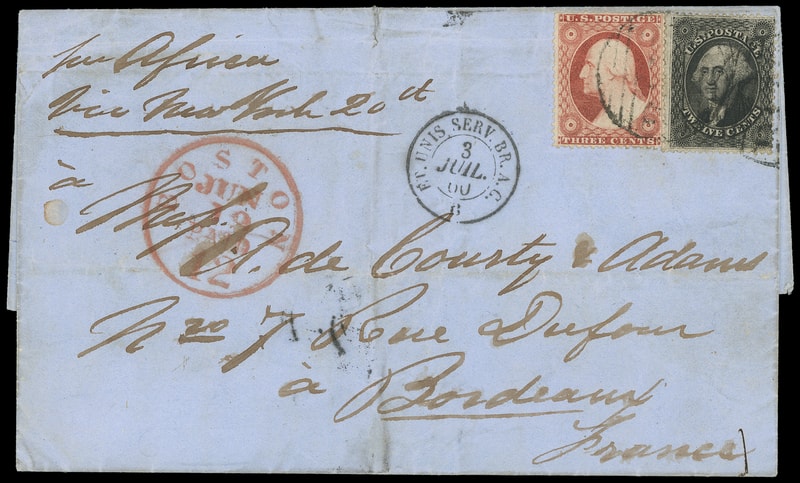 U.S. POSTAGE
THREE CENTS
U.S. POSTAGE
TWELVE CENTS
per Africa
Via New York 20 ct
ET. UNIS SERV. BR. A.C.
3
JUIL.
60
BOSTON
JUN
19
PAID
à Mess. A. de Courty & Adams
Nro 7 Rue Dufour
à Bordeaux
France